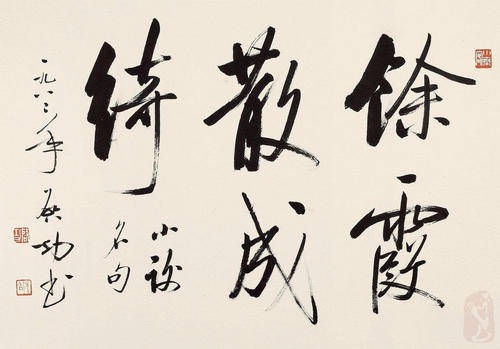 餘霞
散成
綺
小謝
名句
一九八三年 启功书